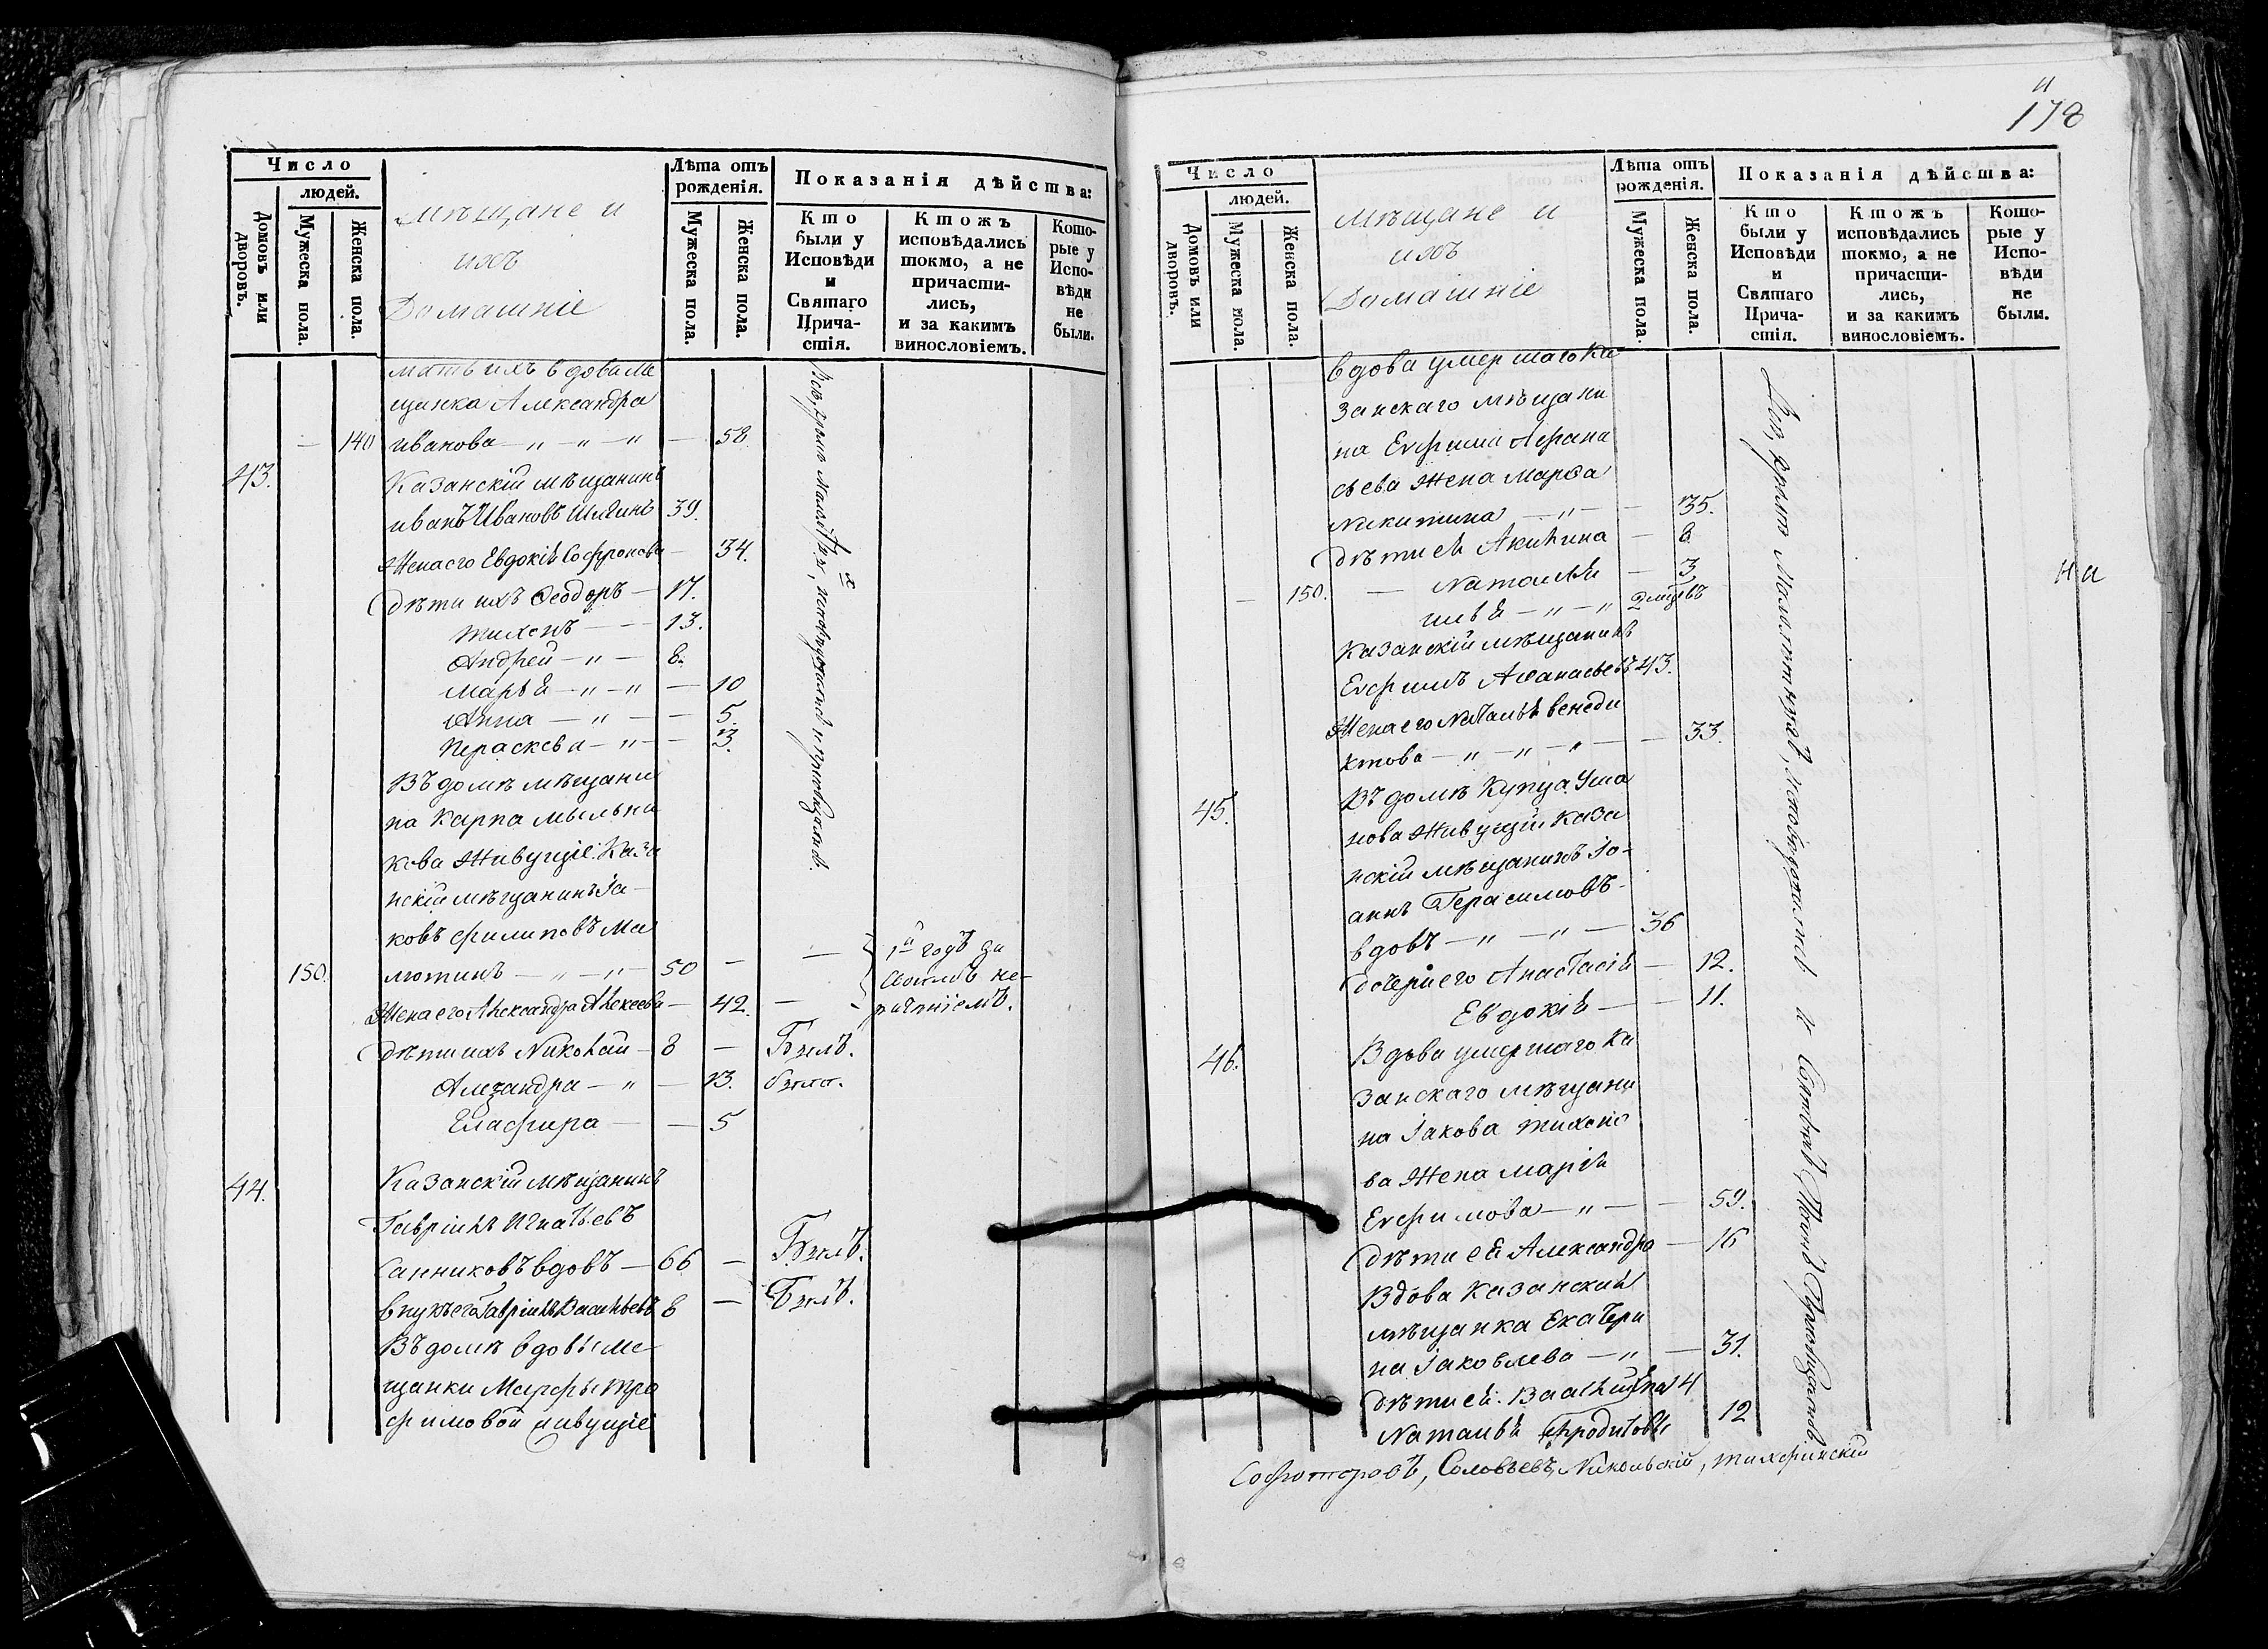 Число
людей.
Домовъ или дворовъ.
Мужеска пола.
Женска пола.
Мѣщане и
ихъ
Домашніе
Лѣта отъ рожденія.
Мужеска пола.
Женска пола.
Показанія дѣйства:
Кто были у Исповѣди и Святаго Причастія.
Ктожъ исповѣдались токмо, а не причастились, и за какимъ винословіемъ.
Которые у Исповѣди не были.
мать ихъ вдова ме
щанка Александра
— 140 Иванова — „ — „ — „ — 58
43. Казанскій мѣщанинъ
Иванъ Ивановъ 39.
Жена его Евдокія Софронова — 34.
Дѣти ихъ Ѳеодоръ — 17.
Тихонъ — — 13.
Андрей — „ — 8.
Марья — „ — „ — 10
Анна — „ — — 5.
Пераскева — „ — — 3.
Въ домѣ мѣщани
на Карпа Мыльни
кова Живущіе: Каза
нскій мѣщанинъ Іа-
ковъ Филиповъ Ма
150. лютинъ — „ — „ — 50 — —
Жена его Александра Алексеева — 42. —
1й годъ за
рачтніемъ.
Дѣти ихъ Николай — 8 — Былъ.
Алеѯандра — „ — 13. была.
Глафира — — 5
44. Казанскій мѣщанинъ
Гавріилъ Игнатьевъ
Санниковъ вдовъ — 66 — Былъ.
внукъ его Гавріилъ Васильевъ 8 — Былъ.
Въ домѣ вдовы ме-
щанки Марфы Тро
фимовой живущіе
Всѣ, кромѣ малолѣтнихъ, исповѣдались и пріобщались.
178
Число
людей.
Домовъ или дворовъ.
Мужеска пола.
Женска пола.
Мѣщане и
ихъ
Домашніе
Лѣта отъ рожденія.
Мужеска пола.
Женска пола.
Показанія дѣйства:
Кто были у Исповѣди и Святаго Причастія.
Ктожъ исповѣдались токмо, а не причастились, и за какимъ винословіемъ.
Которые у Исповѣди не были.
вдова умершаго Ка
занскаго мѣщани
на Евфима Афана
сьева Жена Марѳа
Никитина — „ — — 35.
Дѣти ея Акилина — 8
— 150. — Наталья — 3
— „ — „ 2 мцвъ
Казанскій мѣщанинъ
Евфимъ Аѳанасьевъ 43.
Жена его Наталья Венеди
ктова — „ — „ — „ — — 33.
45. Въ домѣ Купца Уша
нова Живущій Каза
нскій мѣщанинъ Іо-
аннъ Герасимовъ-
вдовъ — „ — „ — 36
дочери его Анастасія — 12.
Евдокія — — 11.
46. Вдова умершаго Ка
занскаго мѣщани
на Іакова Тихоно
ва Жена Марія
Евфимова — „ — — 59.
Дѣти ея Александра — 16
Вдова Казанская
мѣщанка Екатери
на Іаковлева — „ — 31.
Дѣти ея: 4
Наталья 12
Всѣ, кромѣ малолѣтнихъ, исповѣдались и Святыхъ Таинъ Пріобщались
на
Соловьевъ, Никольскій, Тихфинскій